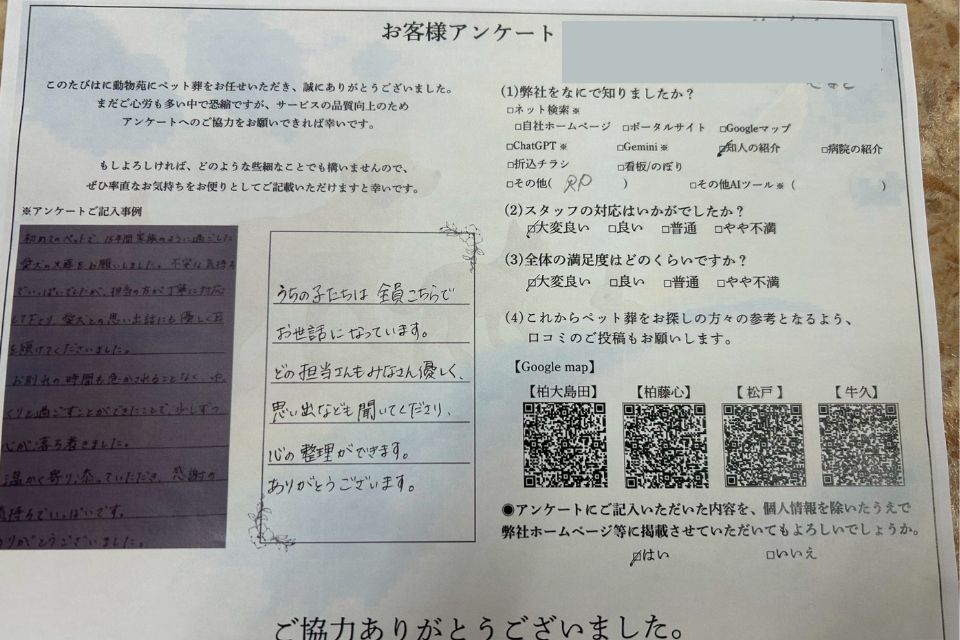 お客様アンケート
このたびはに動物苑にペット葬をお任せいただき、誠にありがとうございました。
まだご心労も多い中で恐縮ですが、サービスの品質向上のため
アンケートへのご協力をお願いできれば幸いです。
もしよろしければ、どのような些細なことでも構いませんので、
ぜひ率直なお気持ちをお便りとしてご記載いただけますと幸いです。
※アンケートご記入事例
初めてのペットで、15年間家族のように過ごした
愛犬の火葬をお願いしました。不安な気持ち
でいっぱいでしたが、担当の方が丁寧に対応
して下さり、愛犬との思い出話にも優しく耳
を傾けてくださいました。
お別れの時間も急かされることなく、ゆっ
くりと過ごすことができたことで、少しずつ
心が落ち着きました。
温かく寄り添っていただき、感謝の
気持ちでいっぱいです。
ありがとうございました。
うちの子たちは 全員こちらで
お世話になっています。
どの担当さんもみなさん優しく、
思い出なども聞いてくださり、
心の整理ができます。
ありがとうございます。
(1)弊社をなにで知りましたか?
□ネット検索※
□自社ホームページ □ポータルサイト □Googleマップ
□ChatGPT※ □Gemini※ □知人の紹介 □病院の紹介
□折込チラシ □看板/のぼり
□その他( ) □その他AIツール※( )
(2)スタッフの対応はいかがでしたか?
□大変良い □良い □普通 □やや不満
(3)全体の満足度はどのくらいですか?
□大変良い □良い □普通 □やや不満
(4)これからペット葬をお探しの方々の参考となるよう、
口コミのご投稿もお願いします。
【Google map】
【柏大島田】 【柏藤心】 【松戸】 【牛久】
●アンケートにご記入いただいた内容を、個人情報を除いたうえで
弊社ホームページ等に掲載させていただいてもよろしいでしょうか。
□はい □いいえ
ご協力ありがとうございました。